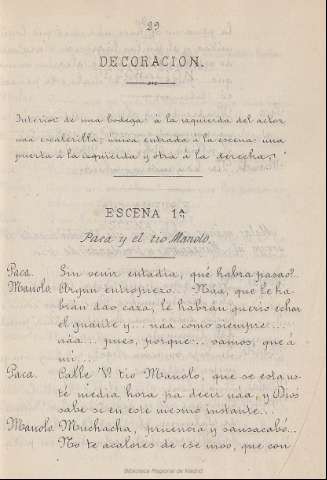 29
DECORACION.
Interior de una bodega: à la izquierda del actor
una escalerilla, única entrada à la escena: una
puerta à la izquierda y otra à la derecha.
ESCENA 1ª
Paca y el tio Manolo.
Paca. Sin venir entadia, qué habrá pasao?..
Manolo. Argun entropiezo... Náa, que le ha-
brán dao caza, le habrán querio echar
el guante y... náa como siempre...
náa... pues, porque... vamos, que á
mi...
Paca. Calle V. tio Manolo, que se está us-
té média hora pa decir náa, y Dios
sabe si en este mesmo instante...
Manolo. Muchacha, pruencia y sansacabó...
No te acalores de ese moo, que con
Biblioteca Regional de Madrid